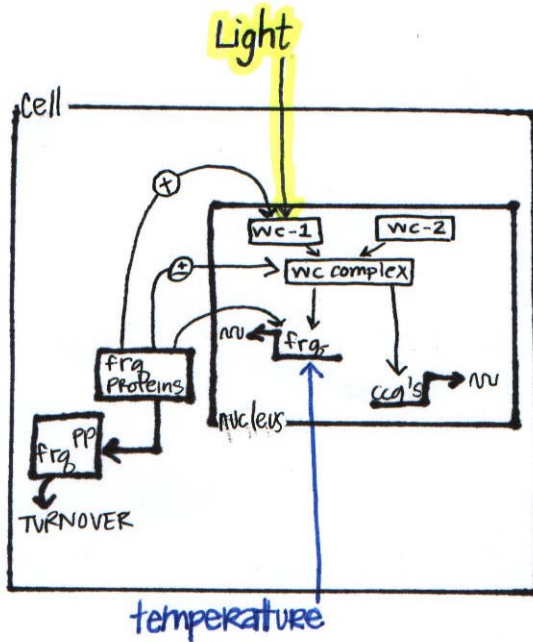 Light
cell
+
wc-1
wc-2
±
wc complex
frq
frq
PROTEINS
ccg's
nucleus
frq PP
TURNOVER
temperature